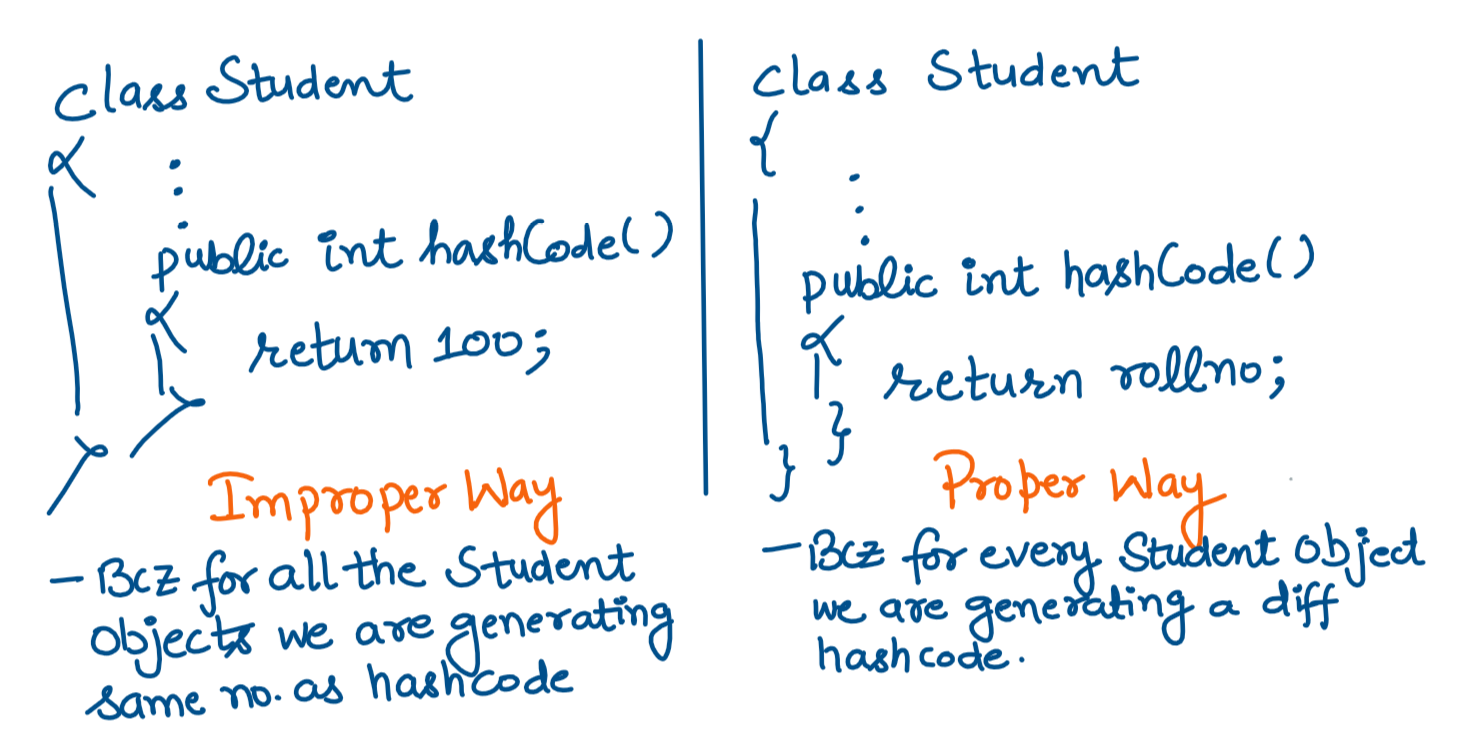 class Student
{
:
public int hashCode()
{
return 100;
}
}
Improper Way
- Bcz for all the Student
objects we are generating
same no. as hashcode
class Student
{
:
public int hashCode()
{
return rollno;
}
}
Proper Way
- Bcz for every Student object
we are generating a diff
hashcode.